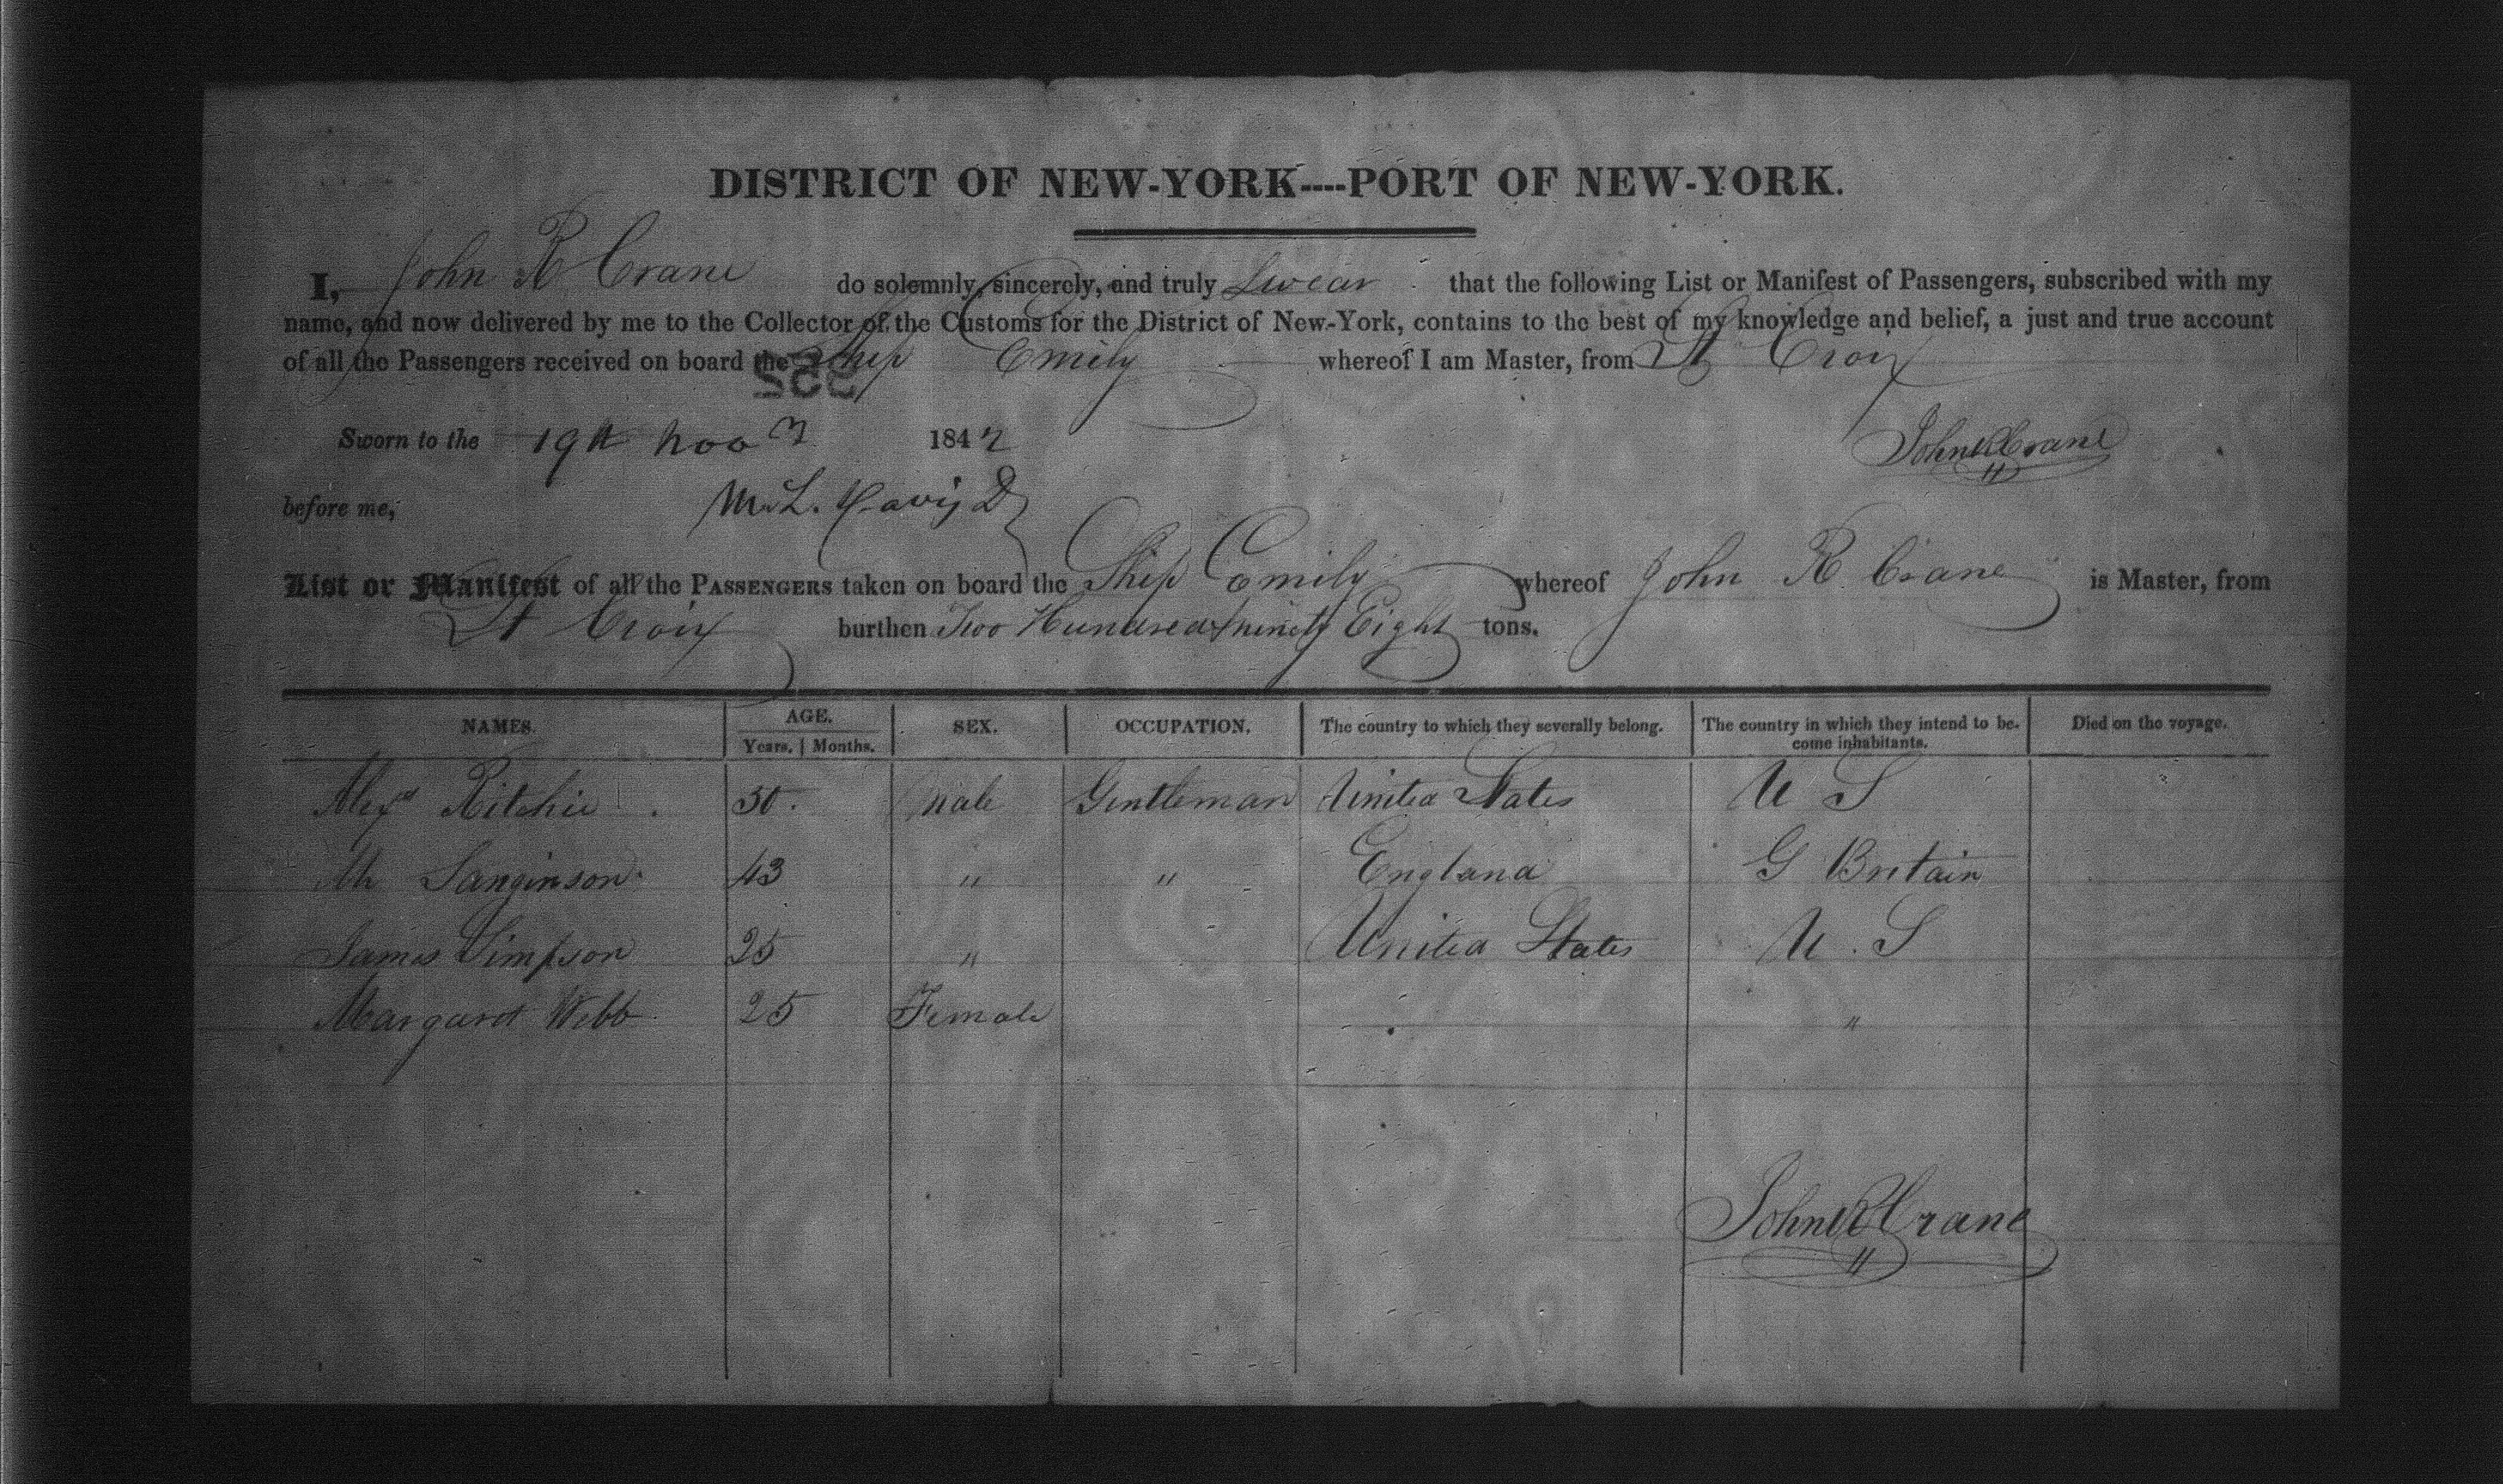 DISTRICT OF NEW-YORK----PORT OF NEW-YORK.
I, John R Crane do solemnly, sincerely, and truly Swear that the following List or Manifest of Passengers, subscribed with my
name, and now delivered by me to the Collector of the Customs for the District of New-York, contains to the best of my knowledge and belief, a just and true account
of all the Passengers received on board the Ship Emily whereof I am Master, from St Croix
Sworn to the 19th 1842 John R Crane
before me,
List or Manifest of all the PASSENGERS taken on board the Ship Emily whereof John R Crane is Master, from
St Croix burthen Two Hundred & ninety Eight tons.
NAMES. AGE. SEX. OCCUPATION. The country to which they severally belong. The country in which they intend to be- Died on the voyage.
Years. | Months. come inhabitants.
Alexr Ritchie 30. Male Gentleman United States U S
Sanginson 43 " " England G Britain
James Simpson 25 " United States U. S
Margaret Webb 25 Female "
John R Crane